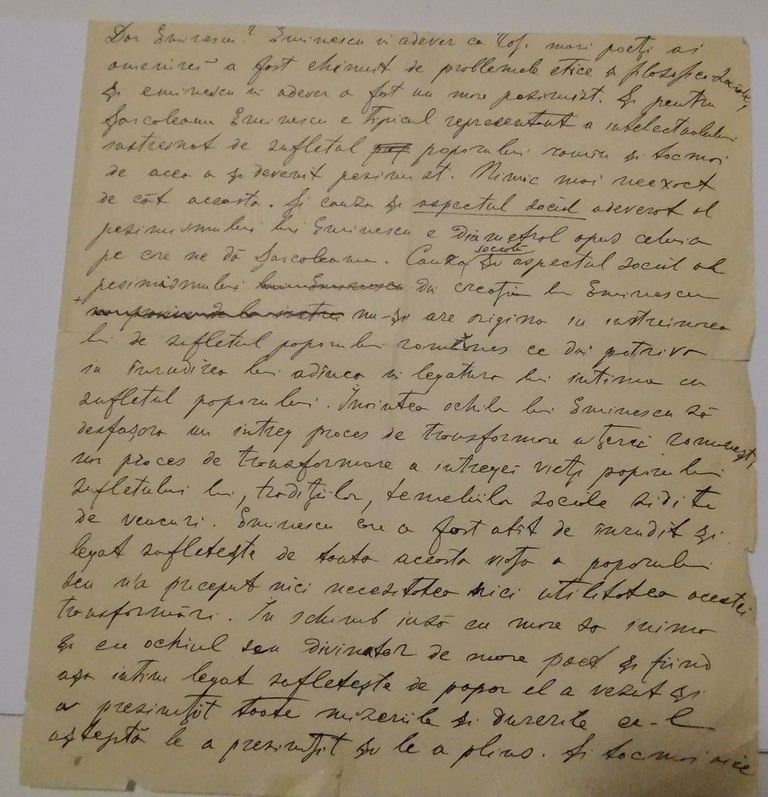 Dar Eminescu? Eminescu în adever ca toți mari poeți ai
omenirei a fost chinuit de problemele etice și filosofice sociale,
și eminescu în adever a fost un mare pesimist. Și pentru
Sarcoleanu Eminescu e tipicul reprezentant a intelectualului
instreinat de sufletul poporului romîn și tocmai
de acea a și devenit pesimist. Nimic mai neexact
de cât aceasta. Și cauza și aspectul social adeverat al
pesimismului lui Eminescu e diametral opus celuia
pe care ne dă Sarcoleanu. Cauza socială și aspectul social al
pesimismului din creațiea lui Eminescu
nu-și are originea in instreinarea
lui de sufletul poporului romănesc ce din potriva
in inrudirea lui adinca in legatura lui intima cu
sufletul poporului. Înointea ochilor lui Eminescu să
desfașora un intreg proces de transformare a țerei romanești,
un proces de transformare a intregei vieți poporului
sufletului lui, tradițiilor, temeliile sociale zidite
de veacuri. Eminescu care a fost atît de inrudit și
legat sufletește de toata aceasta viața a poporului
seu n'a priceput nici necesitatea nici utilitatea acestei
transformări. În schimb insă cu mare sa inima
și cu ochiul seu divinator de mare poet și fiind
așa intim legat sufletește de popor el a vezut și
a presimțit toate mizeriile și durerile ce-l
așteptă le a presimțit și le a plins. Și tocmai aice